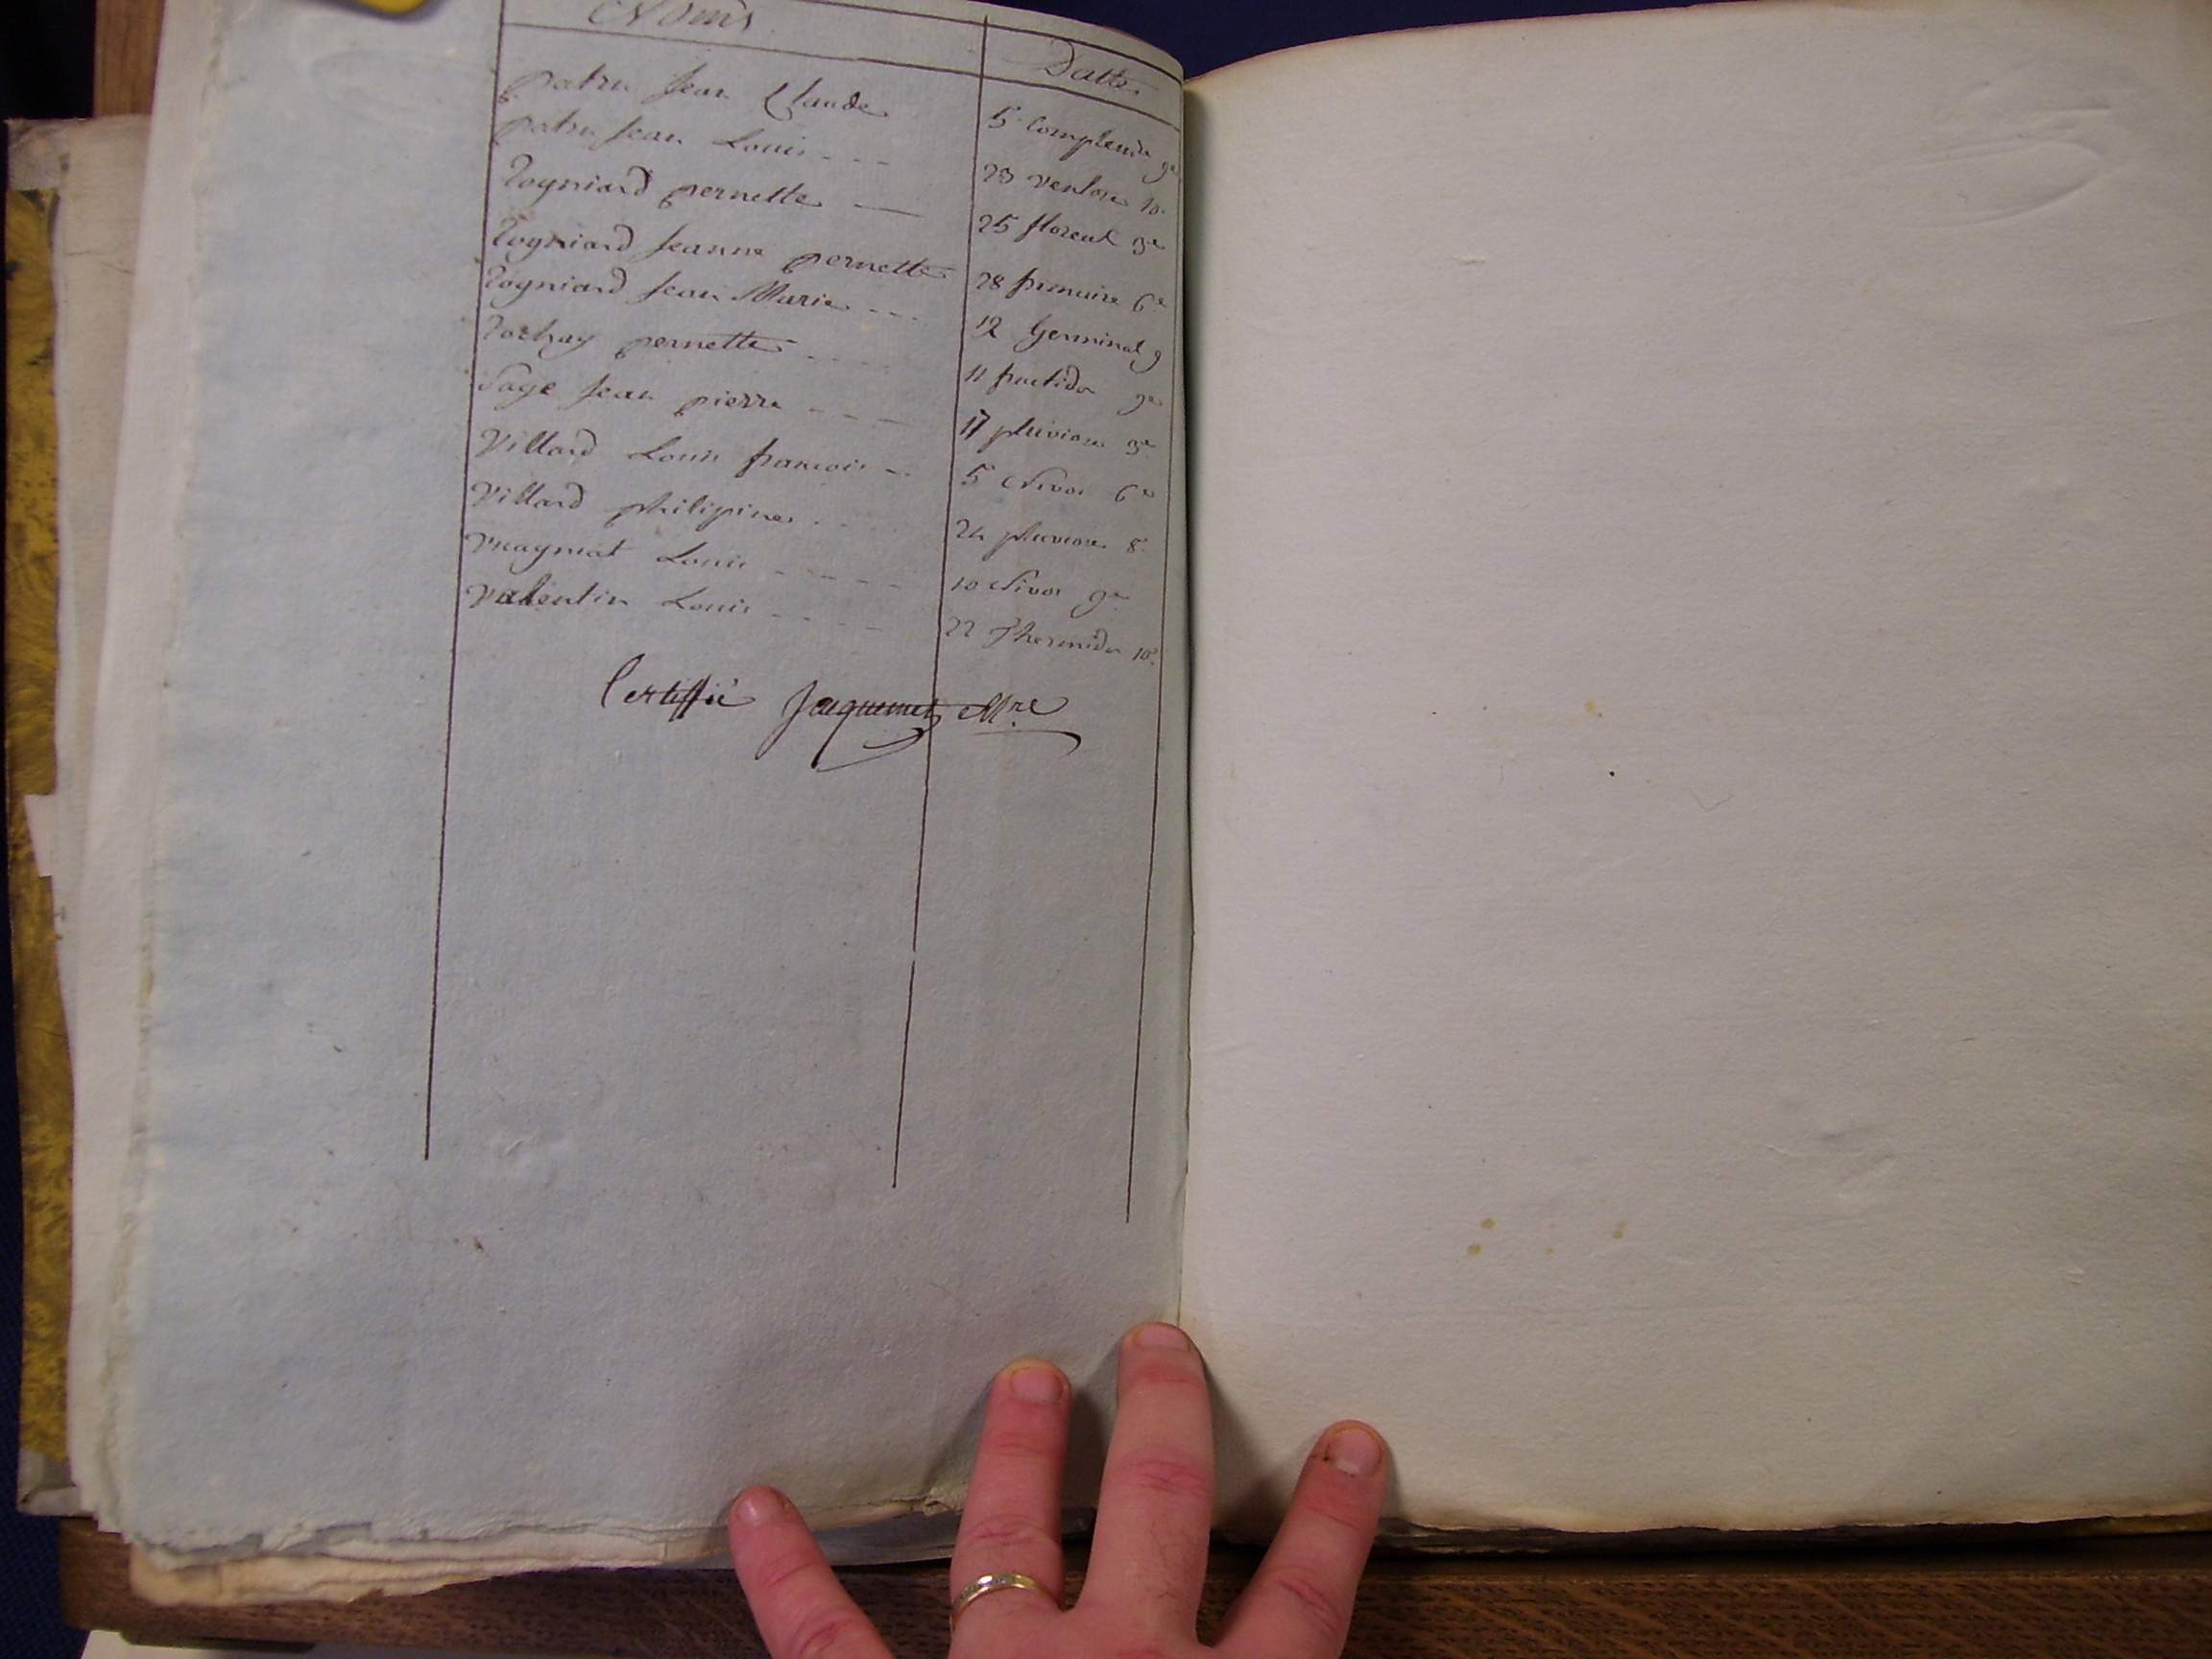 Noms Dattes
patru Jean Claude 5 Complemre 9e
patru Jean Louis 23 ventose 10.
Rogniard pernette 25 floreal 3e
Rogniard Jeanne pernette 28 frimaire 6e
Rogniard Jean Marie 12 Germinal 9
Rochay pernette 11 fructidor 9e
Sage Jean pierre 17 pluviose 3e
Villard Louis francois 5 Nivos 6e
Villard philipine 24 pluviose 8e
Louis 10 Nivos 9e
Valentin Louis 22 Thermidor 10e
Certiffié Jacquemet Mre